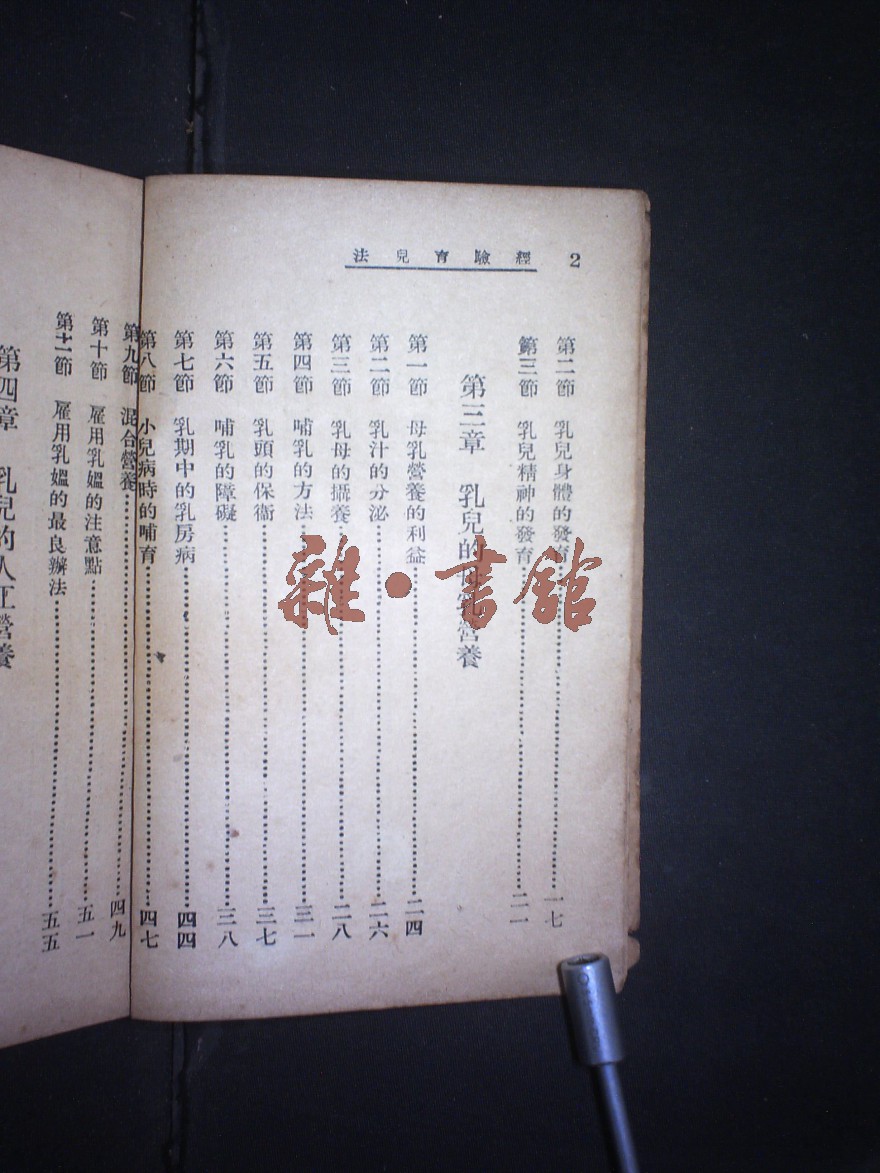 經驗育兒法 2
第二節 乳兒身體的發育 一七
第三節 乳兒精神的發育 二一
第三章 乳兒的母乳營養
第一節 母乳營養的利益 二四
第二節 乳汁的分泌 二六
第三節 乳母的攝養 二八
第四節 哺乳的方法 三一
第五節 乳頭的保衞 三七
第六節 哺乳的障礙 三八
第七節 乳期中的乳房病 四四
第八節 小兒病時的哺育 四七
第九節 混合營養 四九
第十節 雇用乳媼的注意點 五一
第十一節 雇用乳媼的最良辦法 五五
第四章 乳兒的人工營養
雜·書館